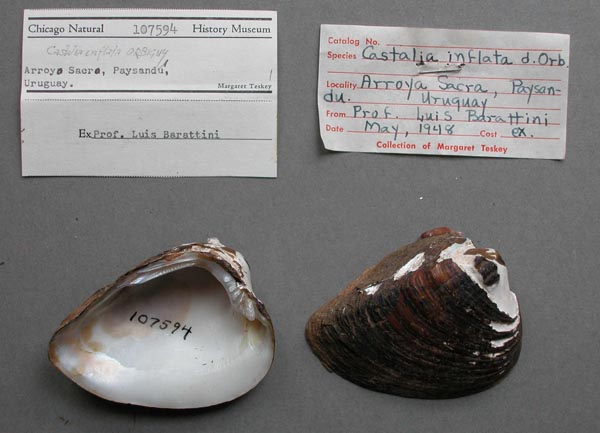 Chicago Natural 107594 History Museum
Castalia inflata ORBIGNY
Arroyo Sacra, Paysandu,
Uruguay. Margaret Teskey
1
Ex Prof. Luis Barattini
Catalog No.
Species Castalia inflata d.Orb.
Locality Arroya Sacra, Paysan-
du. Uruguay
From Prof. Luis Barattini
Date May, 1948 Cost ex.
Collection of Margaret Teskey
107594